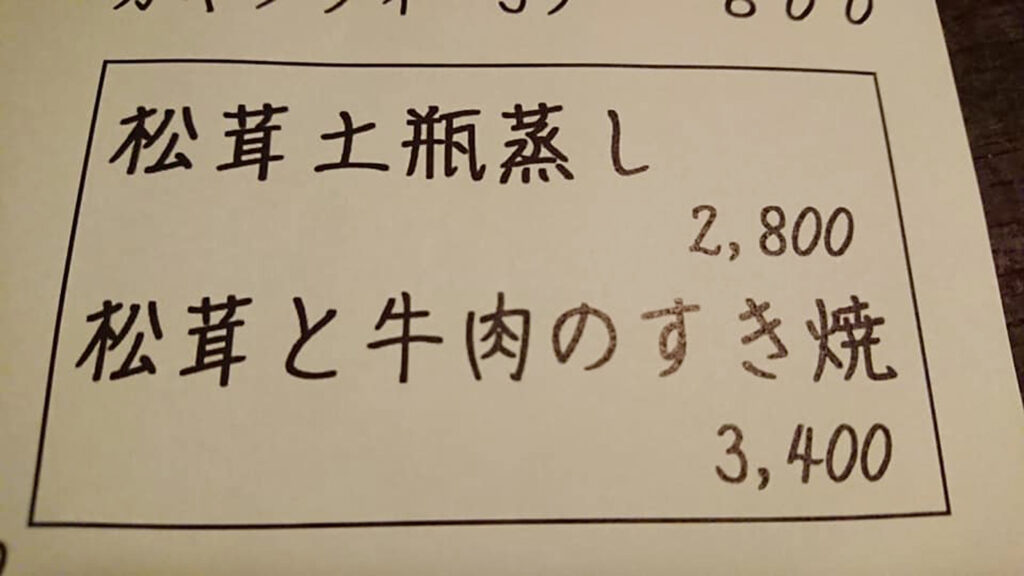 800
松茸土瓶蒸し
2,800
松茸と牛肉のすき焼
3,400